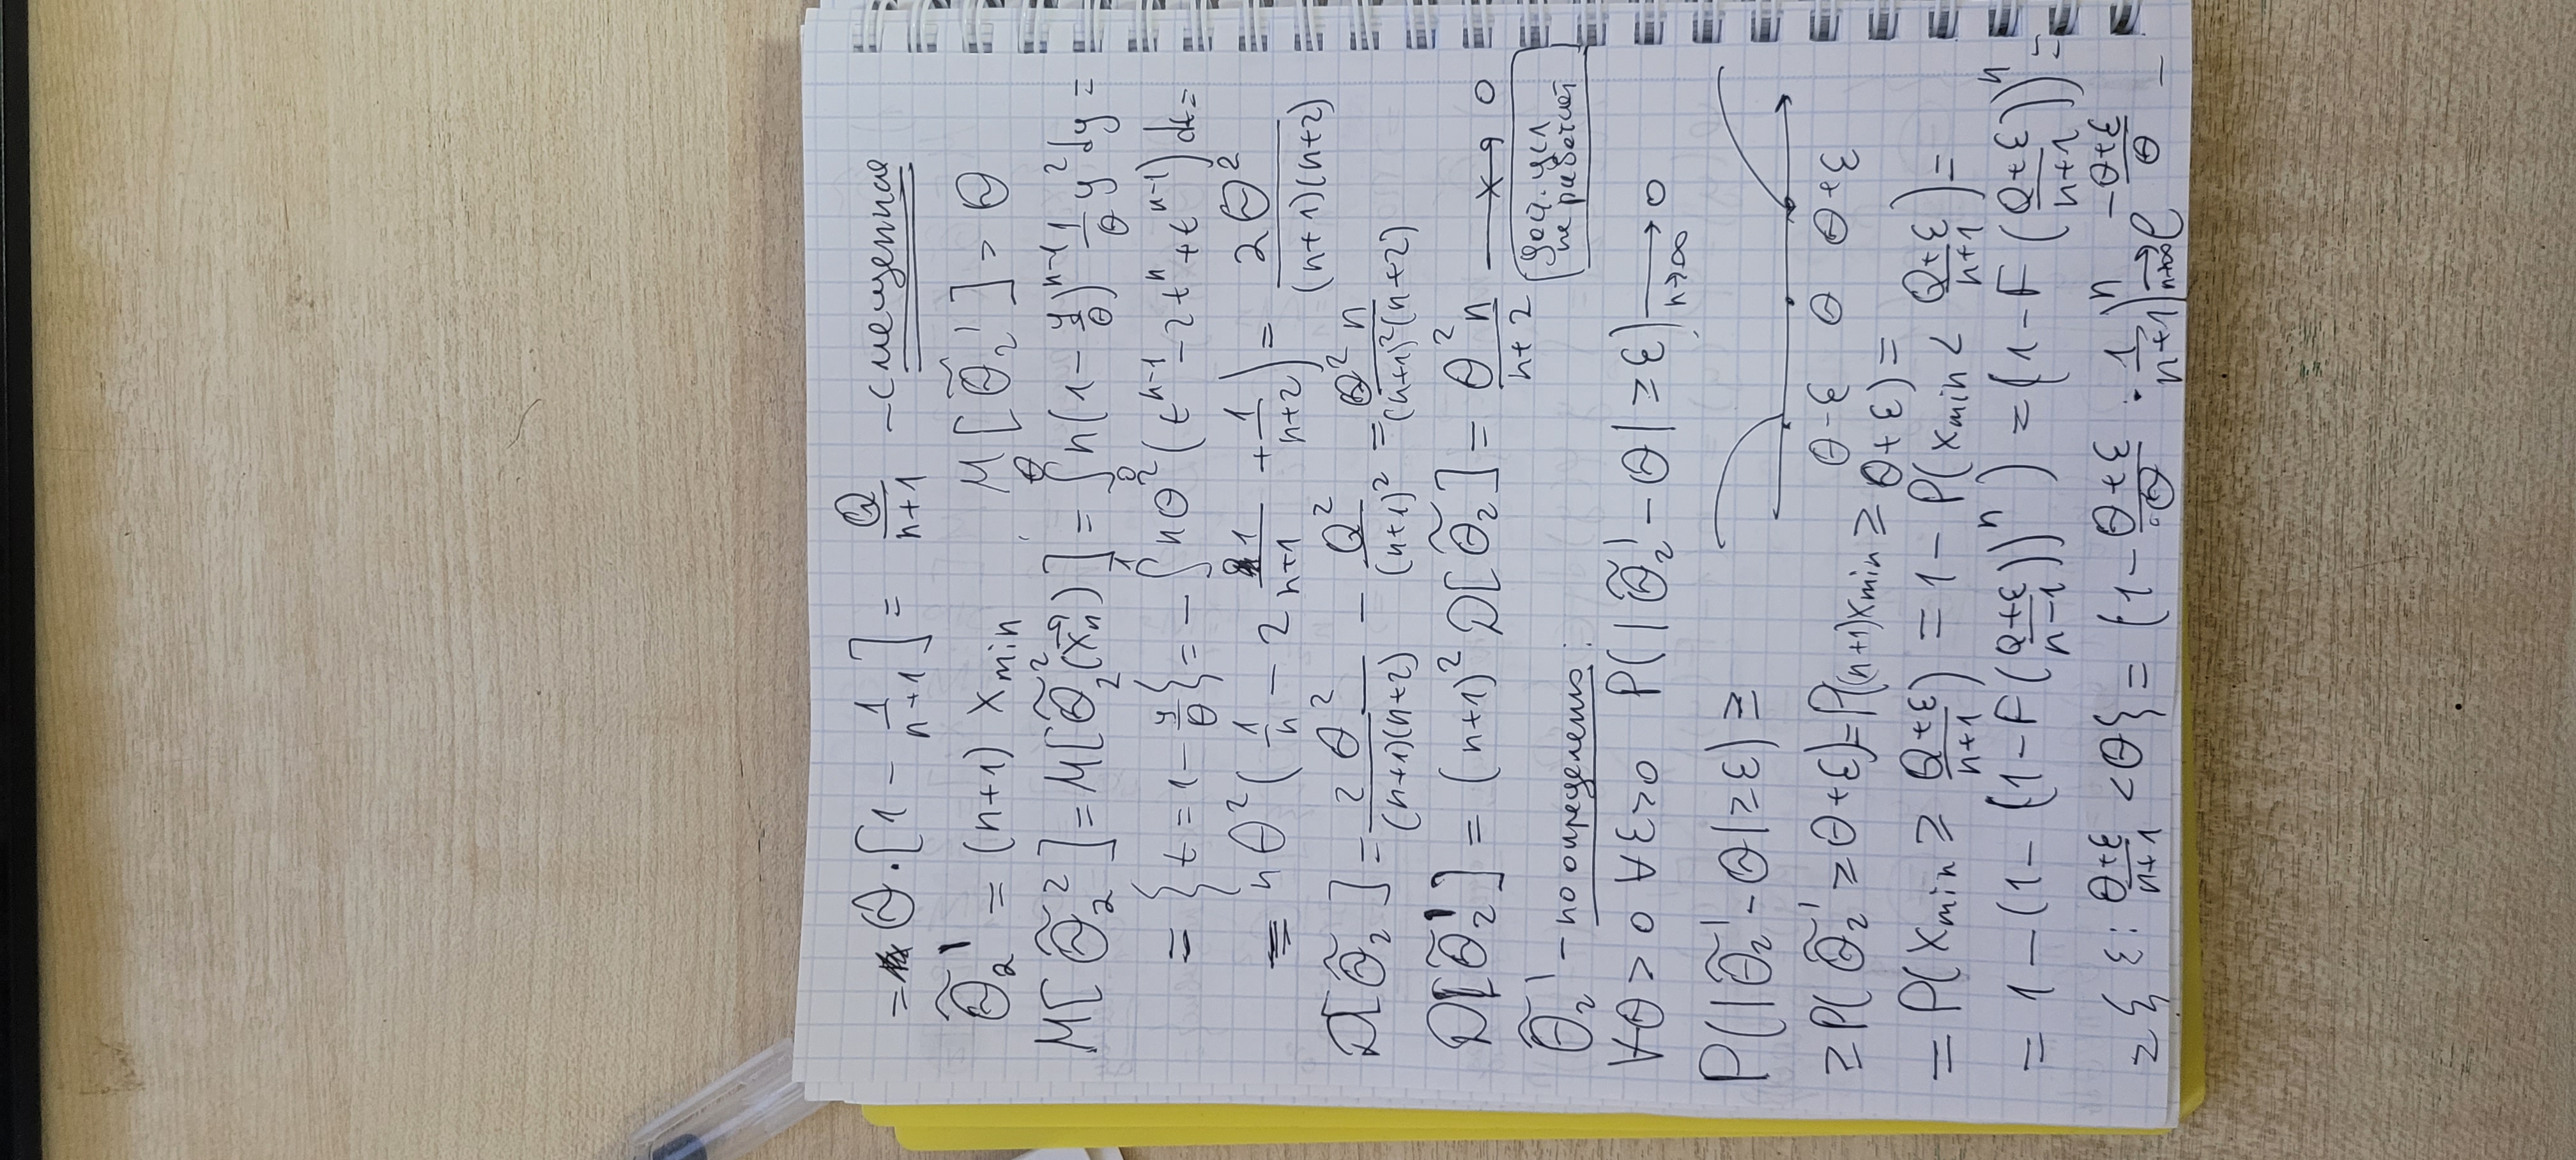 = θ·[1 - 1/(n+1)] = θ/(n+1) - смещенная
θ̃₂' = (n+1) x_min M[θ̃₂'] = θ
M[θ̃₂²] = M[θ̃₂²(x⃗_n)] = ∫₀^θ n(1 - y/θ)^(n-1) 1/θ y² dy =
= {t = 1 - y/θ} = - ∫₀¹ nθ²(t^(n-1) - 2t^n + t^(n-1)) dt =
= nθ²(1/n - 2 1/(n+1) + 1/(n+2)) = 2θ²/((n+1)(n+2))
D[θ̃₂] = 2θ²/((n+1)(n+2)) - θ²/(n+1)² = θ²n/((n+1)²(n+2))
D[θ̃₂'] = (n+1)² D[θ̃₂] = θ²n/(n+2) ↛ 0
дост. усл
не работает
θ̃₂' - по определению:
∀θ > 0 ∀ε > 0 P(|θ̃₂' - θ| ≥ ε) →_(n→∞) 0
P(|θ̃₂' - θ| ≥ ε) ≥
θ-ε θ θ+ε
≥ P(θ̃₂' ≥ θ+ε) = P((n+1)x_min ≥ θ+ε) =
= P(x_min ≥ (θ+ε)/(n+1)) = 1 - P(x_min < (θ+ε)/(n+1)) =
= 1 - (1 - (1 - F((θ+ε)/(n-1)))^n) = (1 - F((θ+ε)/(n+1)))^n =
= {ε: (θ+ε)/(n+1) < θ} = (1 - (θ+ε)/θ · 1/(n+1))^n →_(n→∞) e^(-(θ+ε)/θ) -